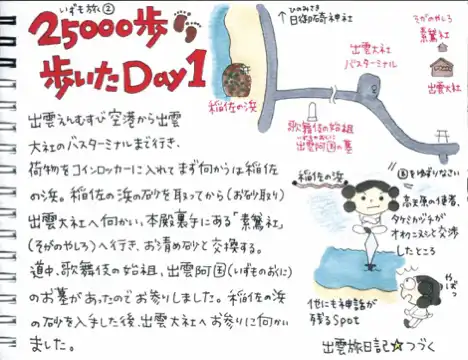 いずも旅②
25000歩
歩いたDay1
↑ひのみさき
日御碕神社
そがのやしろ
素鵞社
出雲大社
バスターミナル
出雲大社
稲佐の浜
歌舞伎の始祖
いずものおくに
出雲阿国の墓
出雲えんむすび空港から出雲
大社のバスターミナルまで行き、
荷物をコインロッカーに入れてまず向かうは稲佐
の浜。稲佐の浜の砂を取ってから(お砂取り)
出雲大社へ向かい、本殿裏手にある「素鵞社」
(そがのやしろ)へ行き、お清め砂と交換する。
道中、歌舞伎の始祖、出雲阿国(いずものおくに)
のお墓があったのでお参りしました。稲佐の浜
の砂を入手した後、出雲大社へお参りに向かい
ました。
稲佐の浜
国をゆずりなさい
高天原の使者、
タケミカヅチが
オオクニヌシと交渉
したところ
やばっ
他にも神話が
残るSpot
出雲旅日記☆つづく